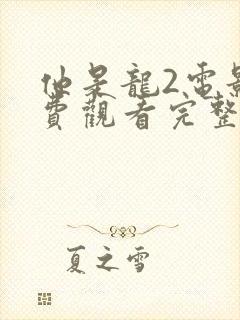 仙呆龍2電影
費觀看完整
夏之雪